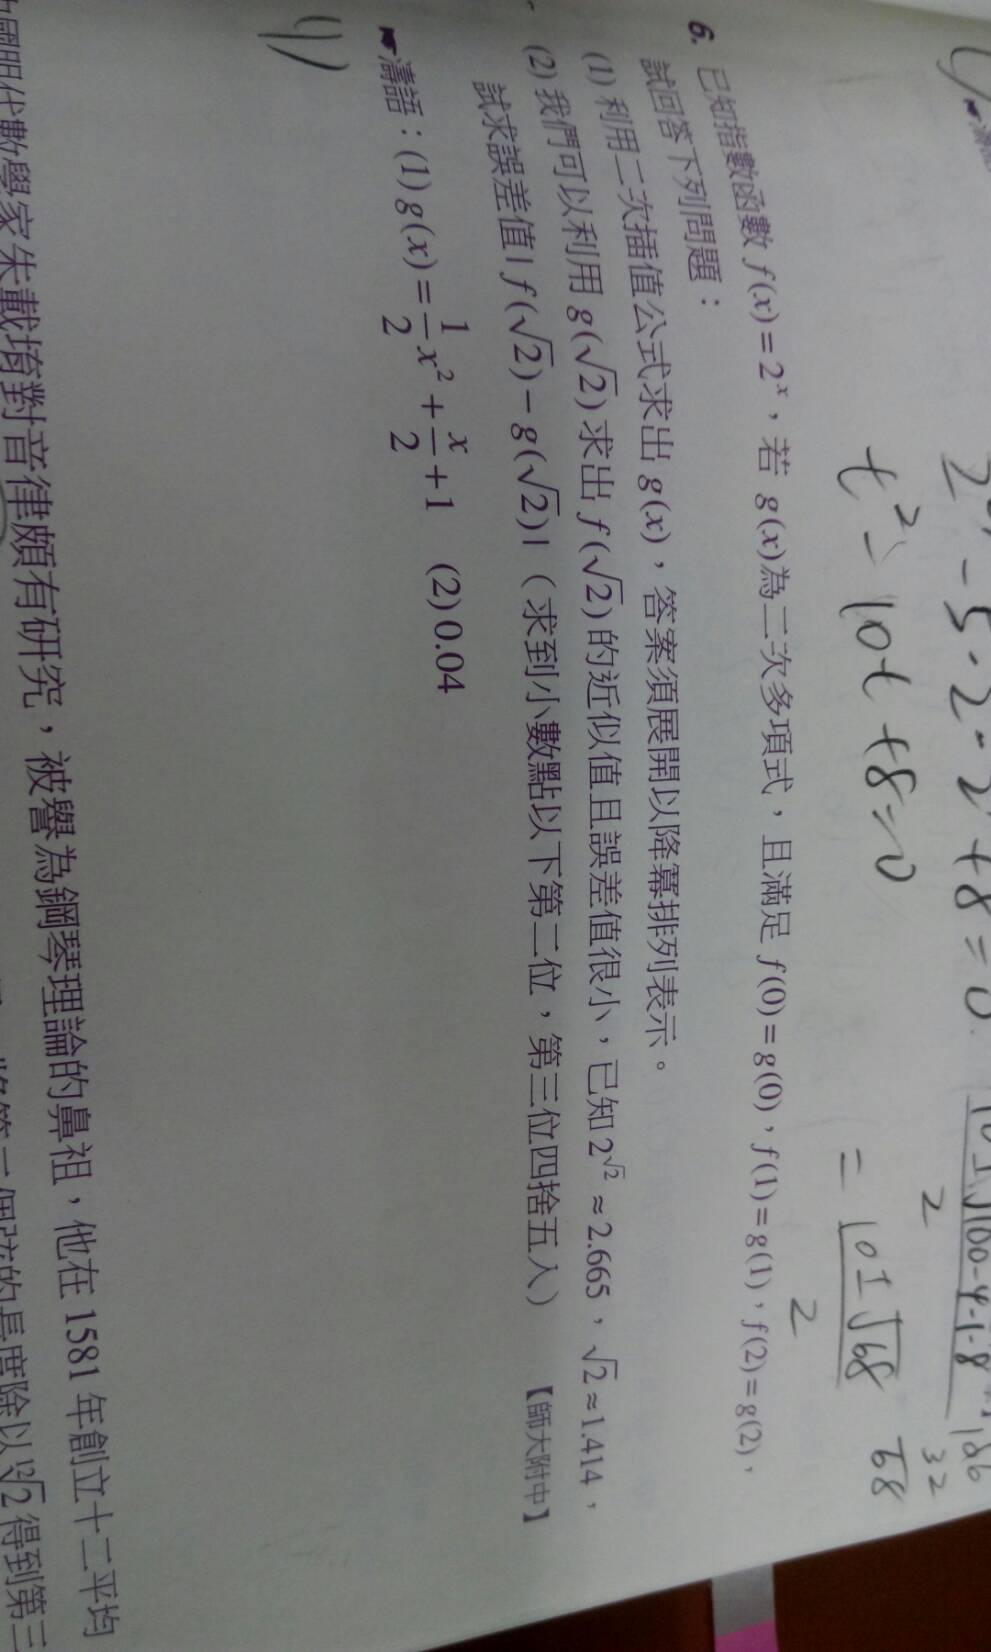 2 - 5·2·2 + 8 = 0
t² - 10t + 8 = 0
10±√100-4·1·8
2
= 10±√68
2
32
68
6. 已知指數函數 f(x)=2ˣ,若 g(x)為二次多項式,且滿足 f(0)=g(0),f(1)=g(1),f(2)=g(2),
試回答下列問題:
(1) 利用二次插值公式求出 g(x),答案須展開以降冪排列表示。
(2) 我們可以利用 g(√2) 求出 f(√2) 的近似值且誤差值很小,已知 2^√2 ≈ 2.665,√2 ≈ 1.414,
試求誤差值 | f(√2) − g(√2) |(求到小數點以下第二位,第三位四捨五入) 【師大附中】
☛濤語:(1) g(x) = 1/2 x² + x/2 + 1 (2) 0.04
中國明代數學家朱載堉對音律頗有研究,被譽為鋼琴理論的鼻祖,他在 1581 年創立十二平均
個弦的長度除以 ¹²√2 得到第三